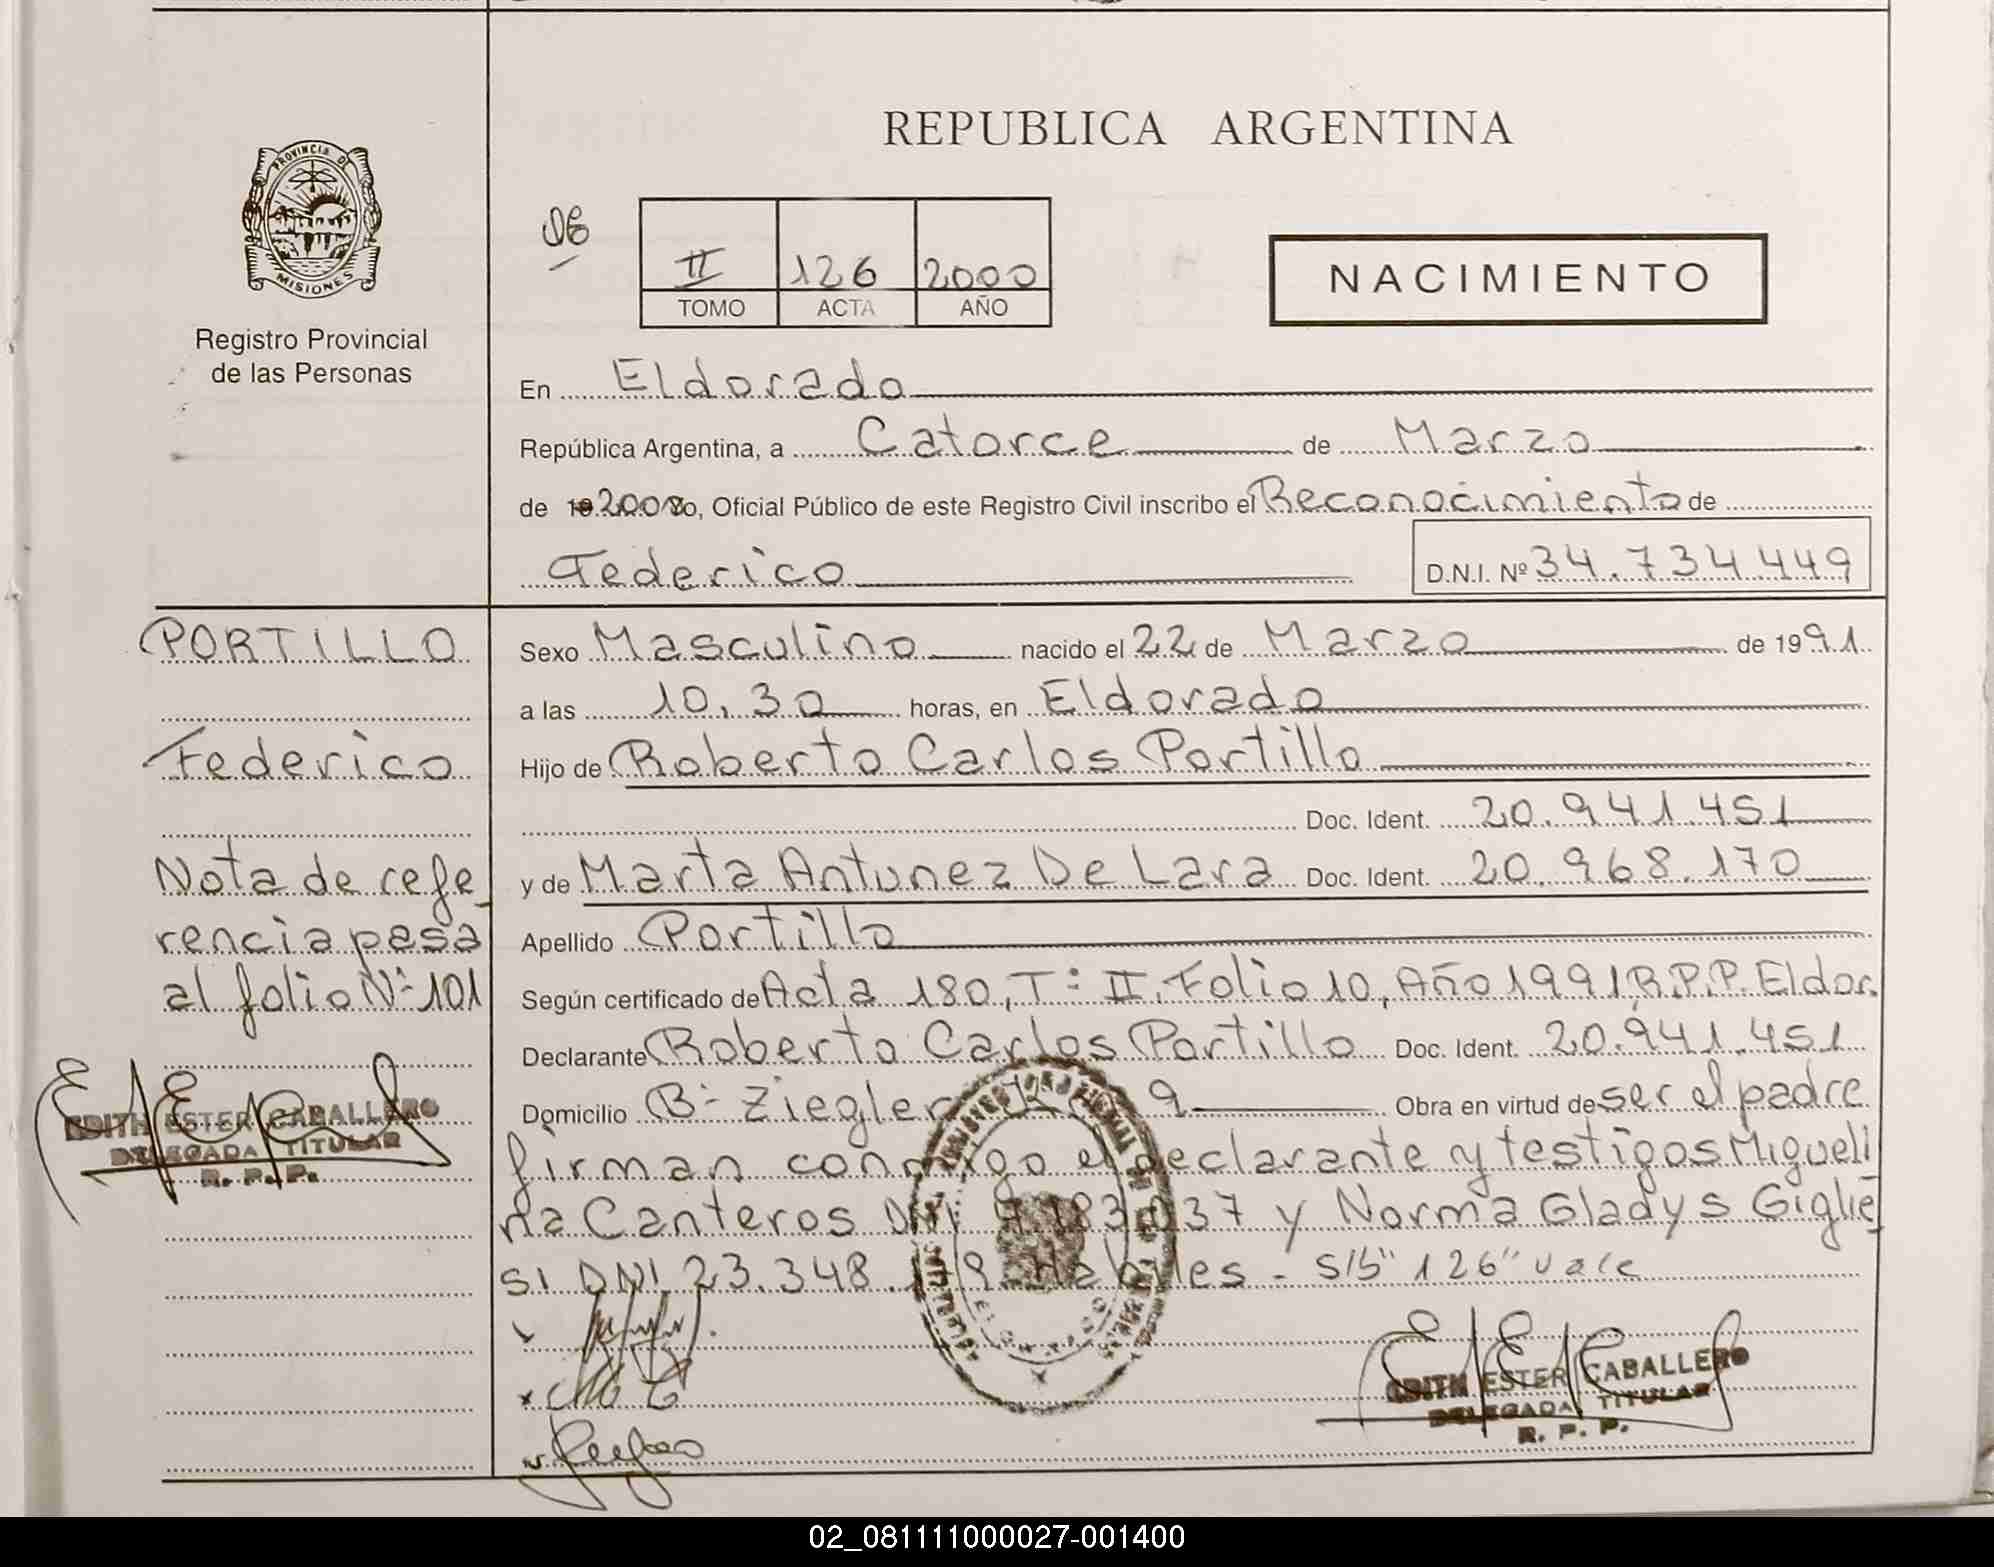 REPUBLICA ARGENTINA
PROVINCIA DE
MISIONES
Registro Provincial
de las Personas
II 126 2000
TOMO ACTA AÑO
NACIMIENTO
En Eldorado
República Argentina, a Catorce de Marzo
de 19 2000 Yo, Oficial Público de este Registro Civil inscribo el Reconocimiento de
Federico D.N.I. Nº 34.734.449
PORTILLO
Federico
Nota de refe
rencia pasa
al folio Nº 101
EDITH ESTER CABALLERO
DELEGADA TITULAR
R. P. P.
Sexo Masculino nacido el 22 de Marzo de 1991
a las 10,30 horas, en Eldorado
Hijo de Roberto Carlos Portillo
Doc. Ident. 20.941.451
y de Marta Antunez De Lara Doc. Ident. 20.968.170
Apellido Portillo
Según certificado de Acta 180, Tº II, Folio 10, Año 1991 R.P.P. Eldor.
Declarante Roberto Carlos Portillo Doc. Ident. 20.941.451
Domicilio Bº Ziegler 9 Obra en virtud de ser el padre
firman conmigo el declarante y testigos Migueli
na Canteros DNI y Norma Gladys Giglie
si DNI 23.348. Habiles - S/b "126" vale
EDITH ESTER CABALLERO
DELEGADA TITULAR
R. P. P.
02_081111000027-001400